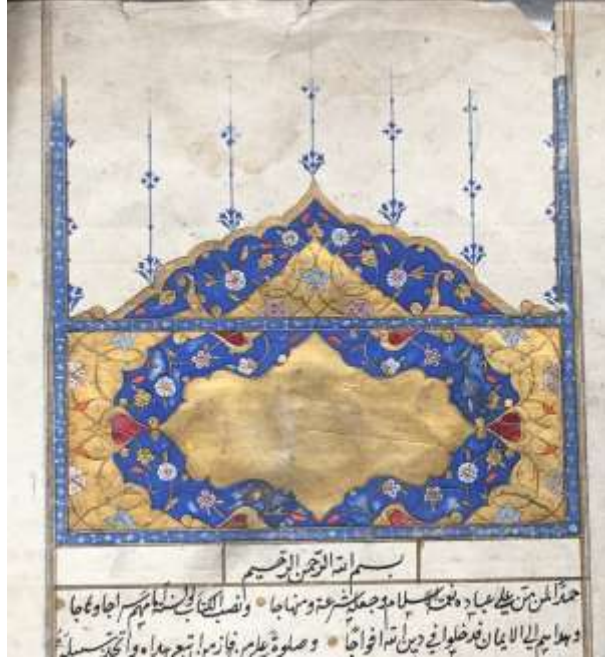 بسم الله الرحمن الرحيم
حمدا لمن من على عباده بنعمة الاسلام وجعله شرعة ومنهاجا ونصب الكتاب والسنة سراجا وهاجا
وهداهم الى الايمان فدخلوا في دين الله افواجا وصلوة على من فاز من اتبع هداه واتخذ سبيله